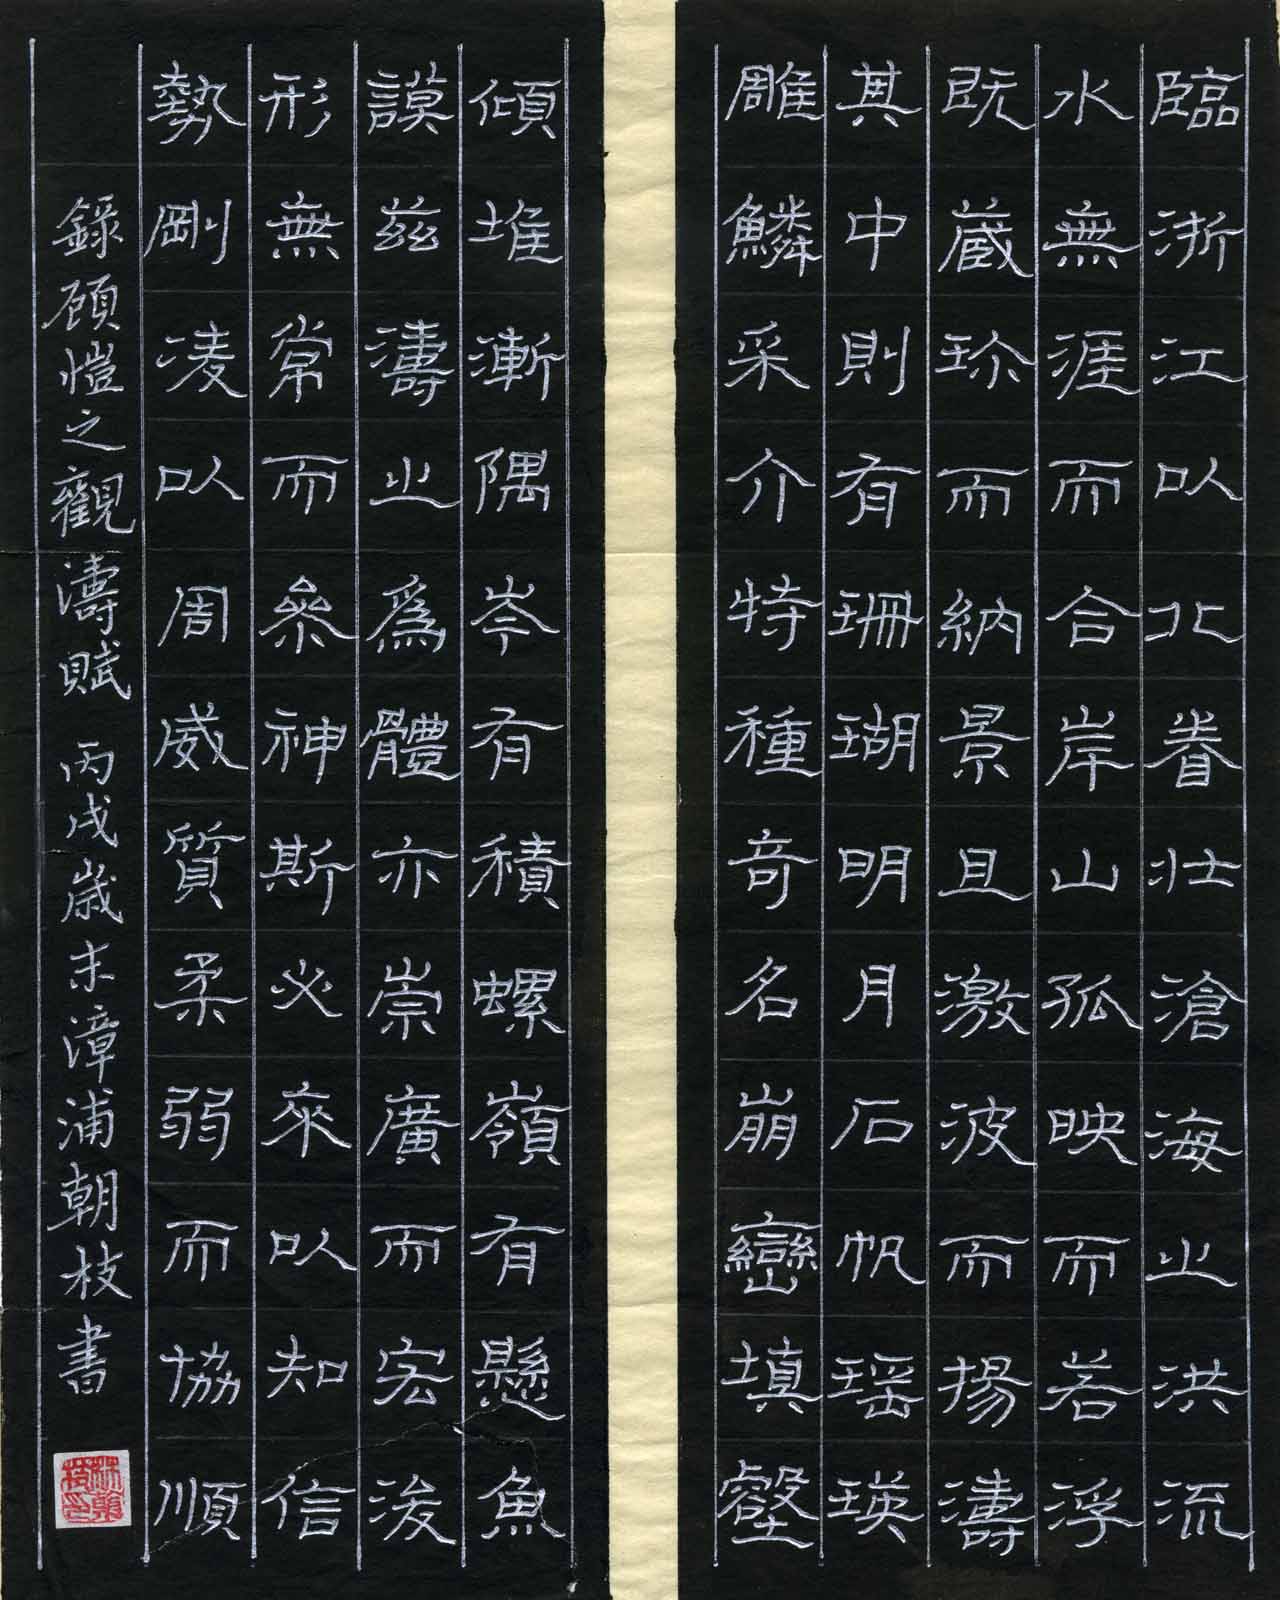 臨浙江以北眷壮滄海之洪流
水無涯而合岸山孤映而若浮
既蔵珎而納景且激波而揚濤
其中則有珊瑚明月石帆瑶瑛
雕鱗采介特種奇名崩巒填壑
傾堆漸隅岑有積螺嶺有懸魚
謨茲濤之為體亦崇廣而宏浚
形無常而參神斯必來以知信
勢剛凌以周威質柔弱而協順
錄顾愷之觀濤賦 丙戌歲末漳浦朝枝書